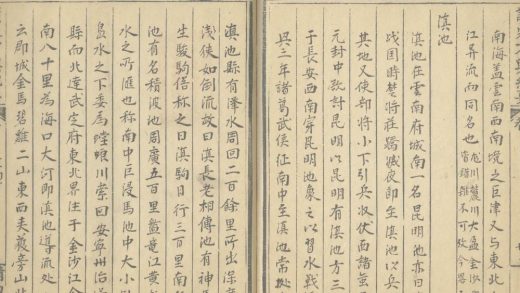 南海盖雲南西南境之巨津又与東北
江异流而同名也
滇池
滇池在雲南府城南一名昆明池亦曰
战国時楚将莊蹻滅夜郎至滇池以兵
其地又使部将小卜引兵收伏西諸蛮
元封中欲討昆明以昆明有滇池方三
于長安西南穿昆明池象之以習水戰
興三年諸葛武侯征南中至滇池常
滇池縣有澤水周回二百餘里所出深
淺狭如倒流故曰滇長老相傳池有神
生駿駒俗称之曰滇駒日行三百里南
池有名積波池周廣五百里盤龍江黄
水之所匯也称南中巨浸焉池中大小
島水之下委為螳螂川縈回安寧州治
縣而北達武定府東北界注于金沙江
南八十里為海口大河即滇池導流処
云郎城金馬碧雞二山東西夹護旁山